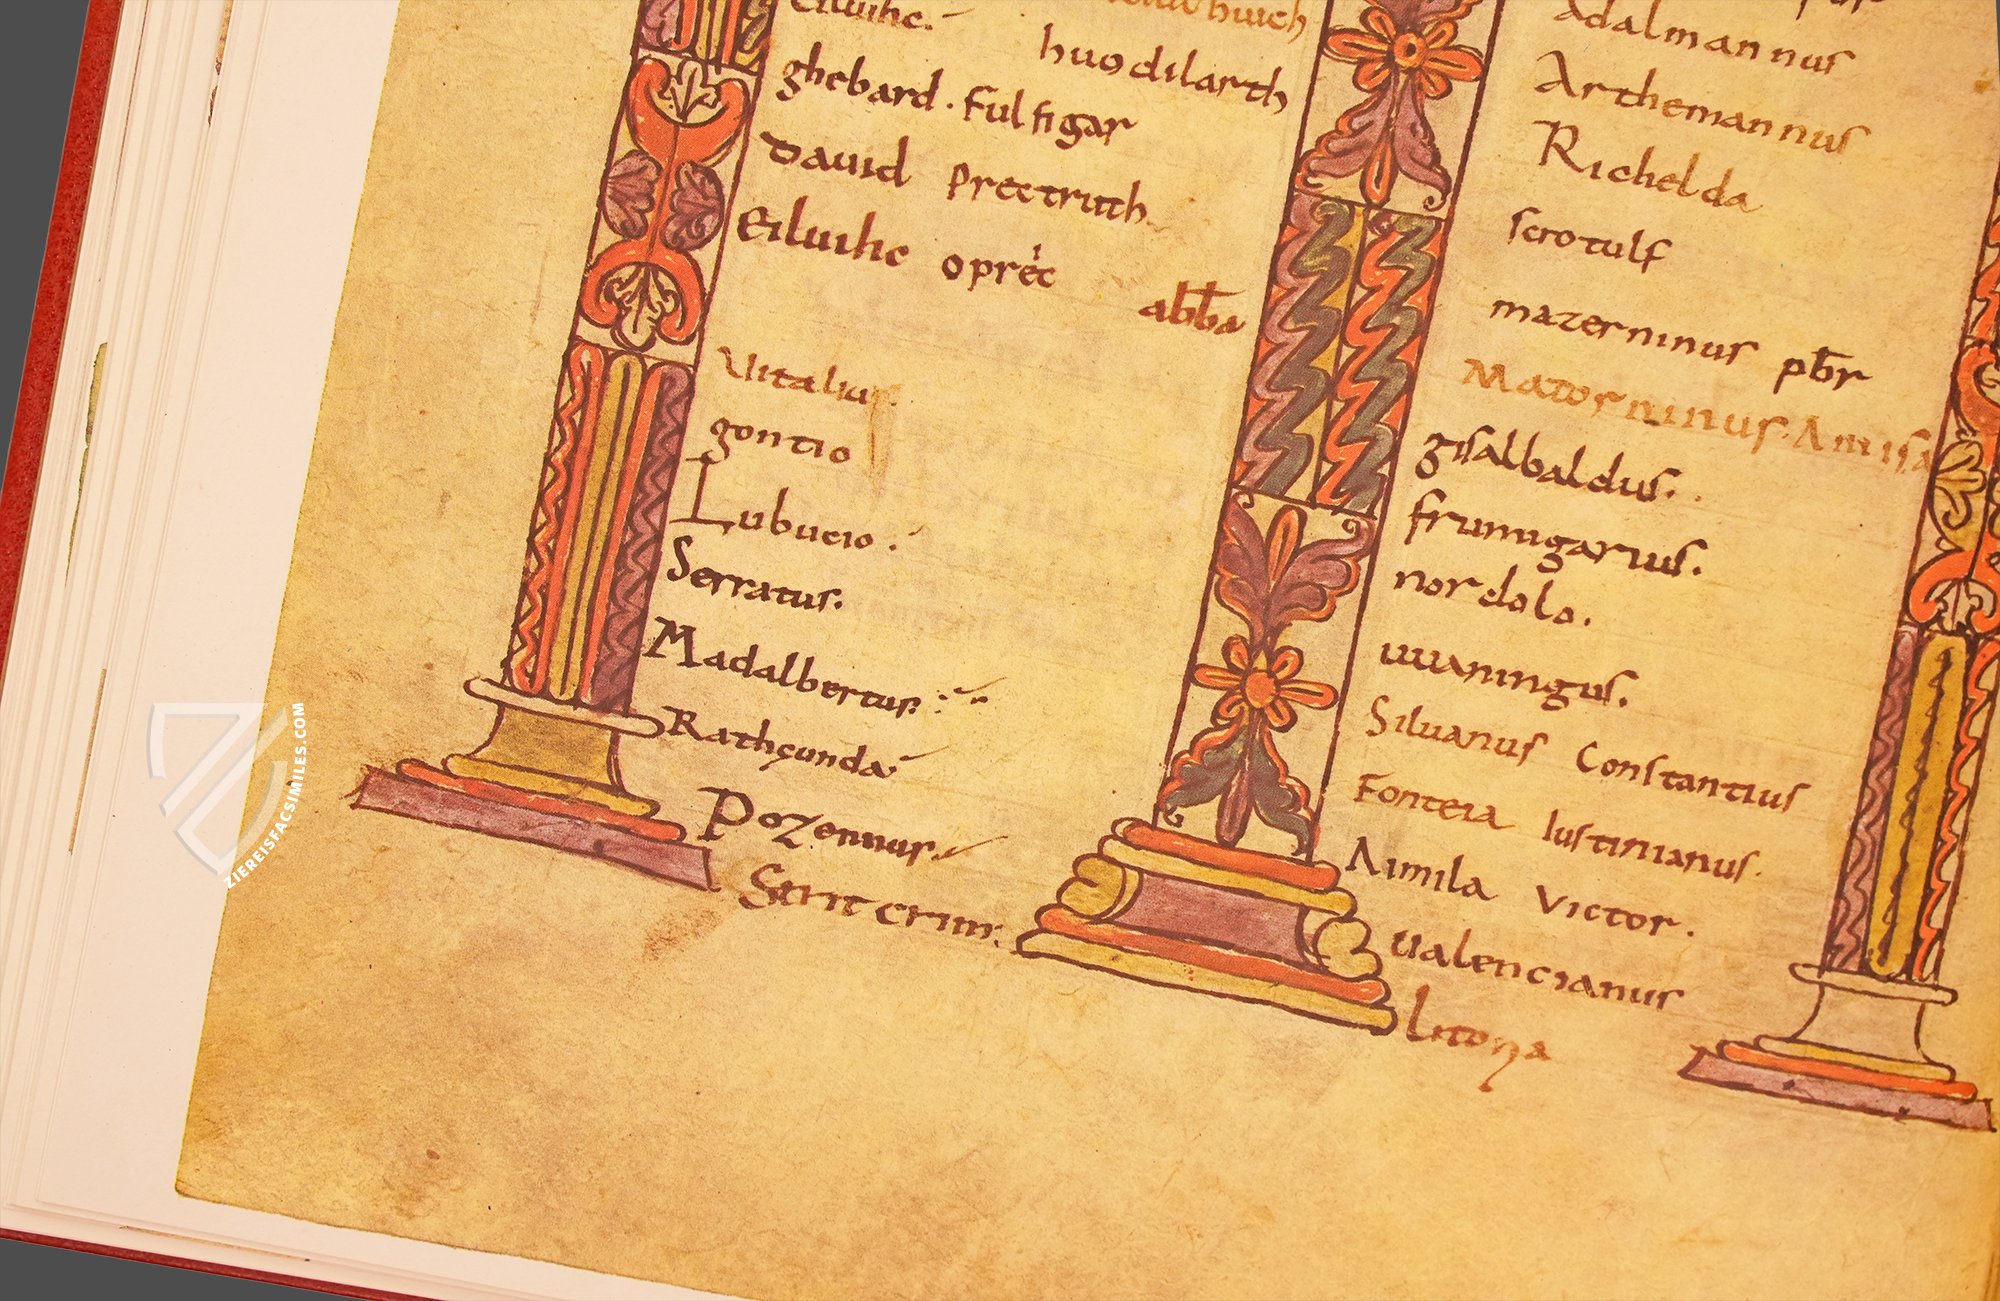 Eiluuihc.
huodilarth
ghebard. fulfigar
Dauid prectruth
Eiluuihc opr&c
abba
Uitalius.
gontio
Lubucio.
Serratus.
Madalbertus:
Rathcunda
Pozennus.
Adalmannus
Arthemannus
Richelda
scrotulf
mazerninus pbr
Materninus. Amisa
gisalbaldus.
frumigarius.
nordolo.
uuaningus.
Siluanus Constantius
Fonteia Iustinianus.
Aimila Victor.
Ualencianus
ZIEREISFACSIMILES.COM